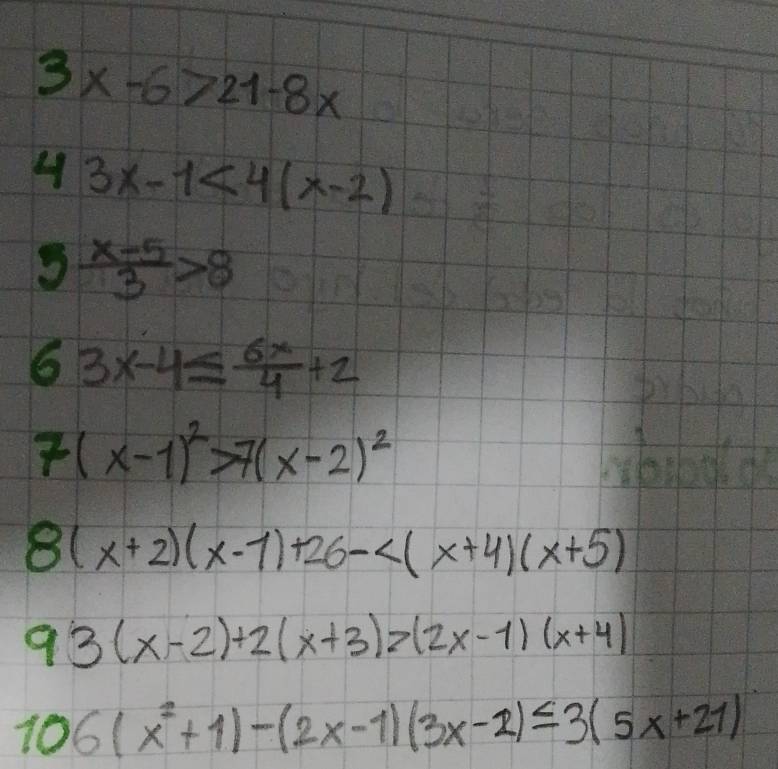 3 x-6>21-8x
4 3x-1<4(x-2)
5 x-5/3>8
6 3x-4≤6x/4+2
7 (x-1)²>7(x-2)²
8 (x+2)(x-1)+26-<(x+4)(x+5)
9 3(x-2)+2(x+3)>(2x-1)(x+4)
10 6(x²+1)-(2x-1)(3x-2)≤3(5x+21)